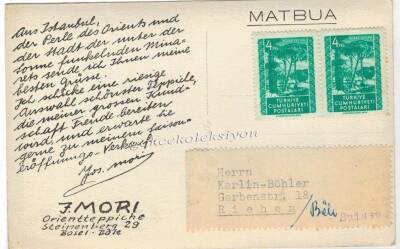 MATBUA
Aus Istanbul,
der Perle des Orients und
der Stadt der unter der
Sonne funkelnden Mina-
rets sende ich Ihnen meine
besten Grüsse.
Ich schicke eine riesige
Auswahl schönster Teppiche,
die meiner grossen Kund-
schaft Freude bereiten
wird, und erwarte Sie
gerne zu meinem Saison-
eröffnungs-Verkauf.
Jos. Mori
J. MORI
Orientteppiche
Steinenberg 29
Basel
4
TÜRKİYE
CUMHURİYETİ
POSTALARI
4
TÜRKİYE
CUMHURİYETİ
POSTALARI
Herrn
Karlin-Böhler
Gerbenstr. 18
Riehen